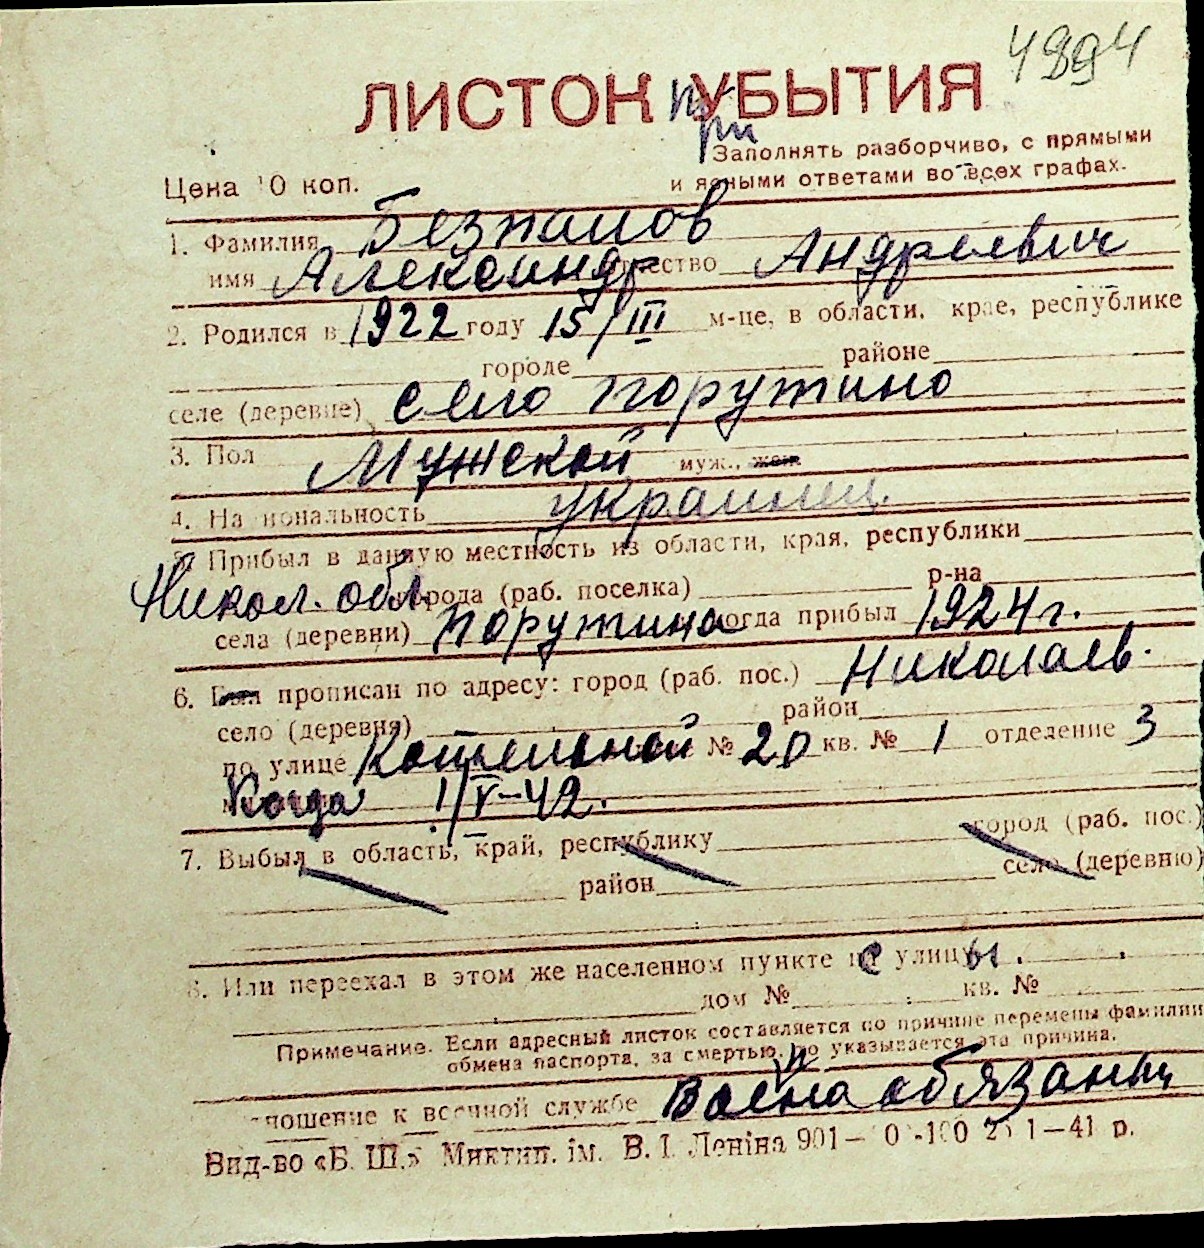 4894
ЛИСТОК при УБЫТИЯ
Заполнять разборчиво, с прямыми
Цена 10 коп. и ясными ответами во всех графах.
1. Фамилия Безпалов
имя Александр отчество Андреевич
2. Родился в 1922 году 15/III м-це, в области, крае, республике
городе районе
селе (деревне) село Порутино
3. Пол Мужской муж., жен.
4. Национальность украинец.
5. Прибыл в данную местность из области, края, республики
Никол. обл. города (раб. поселка) р-на
села (деревни) Порутина когда прибыл 1924 г.
6. Был прописан по адресу: город (раб. пос.) Николаев.
село (деревня) район
по улице Котельной № 20 кв. № 1 отделение 3
Когда 1/V-42.
7. Выбыл в область, край, республику город (раб. пос.)
район село (деревню)
8. Или переехал в этом же населенном пункте с улицы.
дом № кв. №
Примечание. Если адресный листок составляется по причине перемены фамилии
обмена паспорта, за смертью, то указывается эта причина.
отношение к военной службе Военнаобязаныц
Вид-во «Б. Ш.» Миктип. ім. В. І. Леніна 901— 1—41 р.